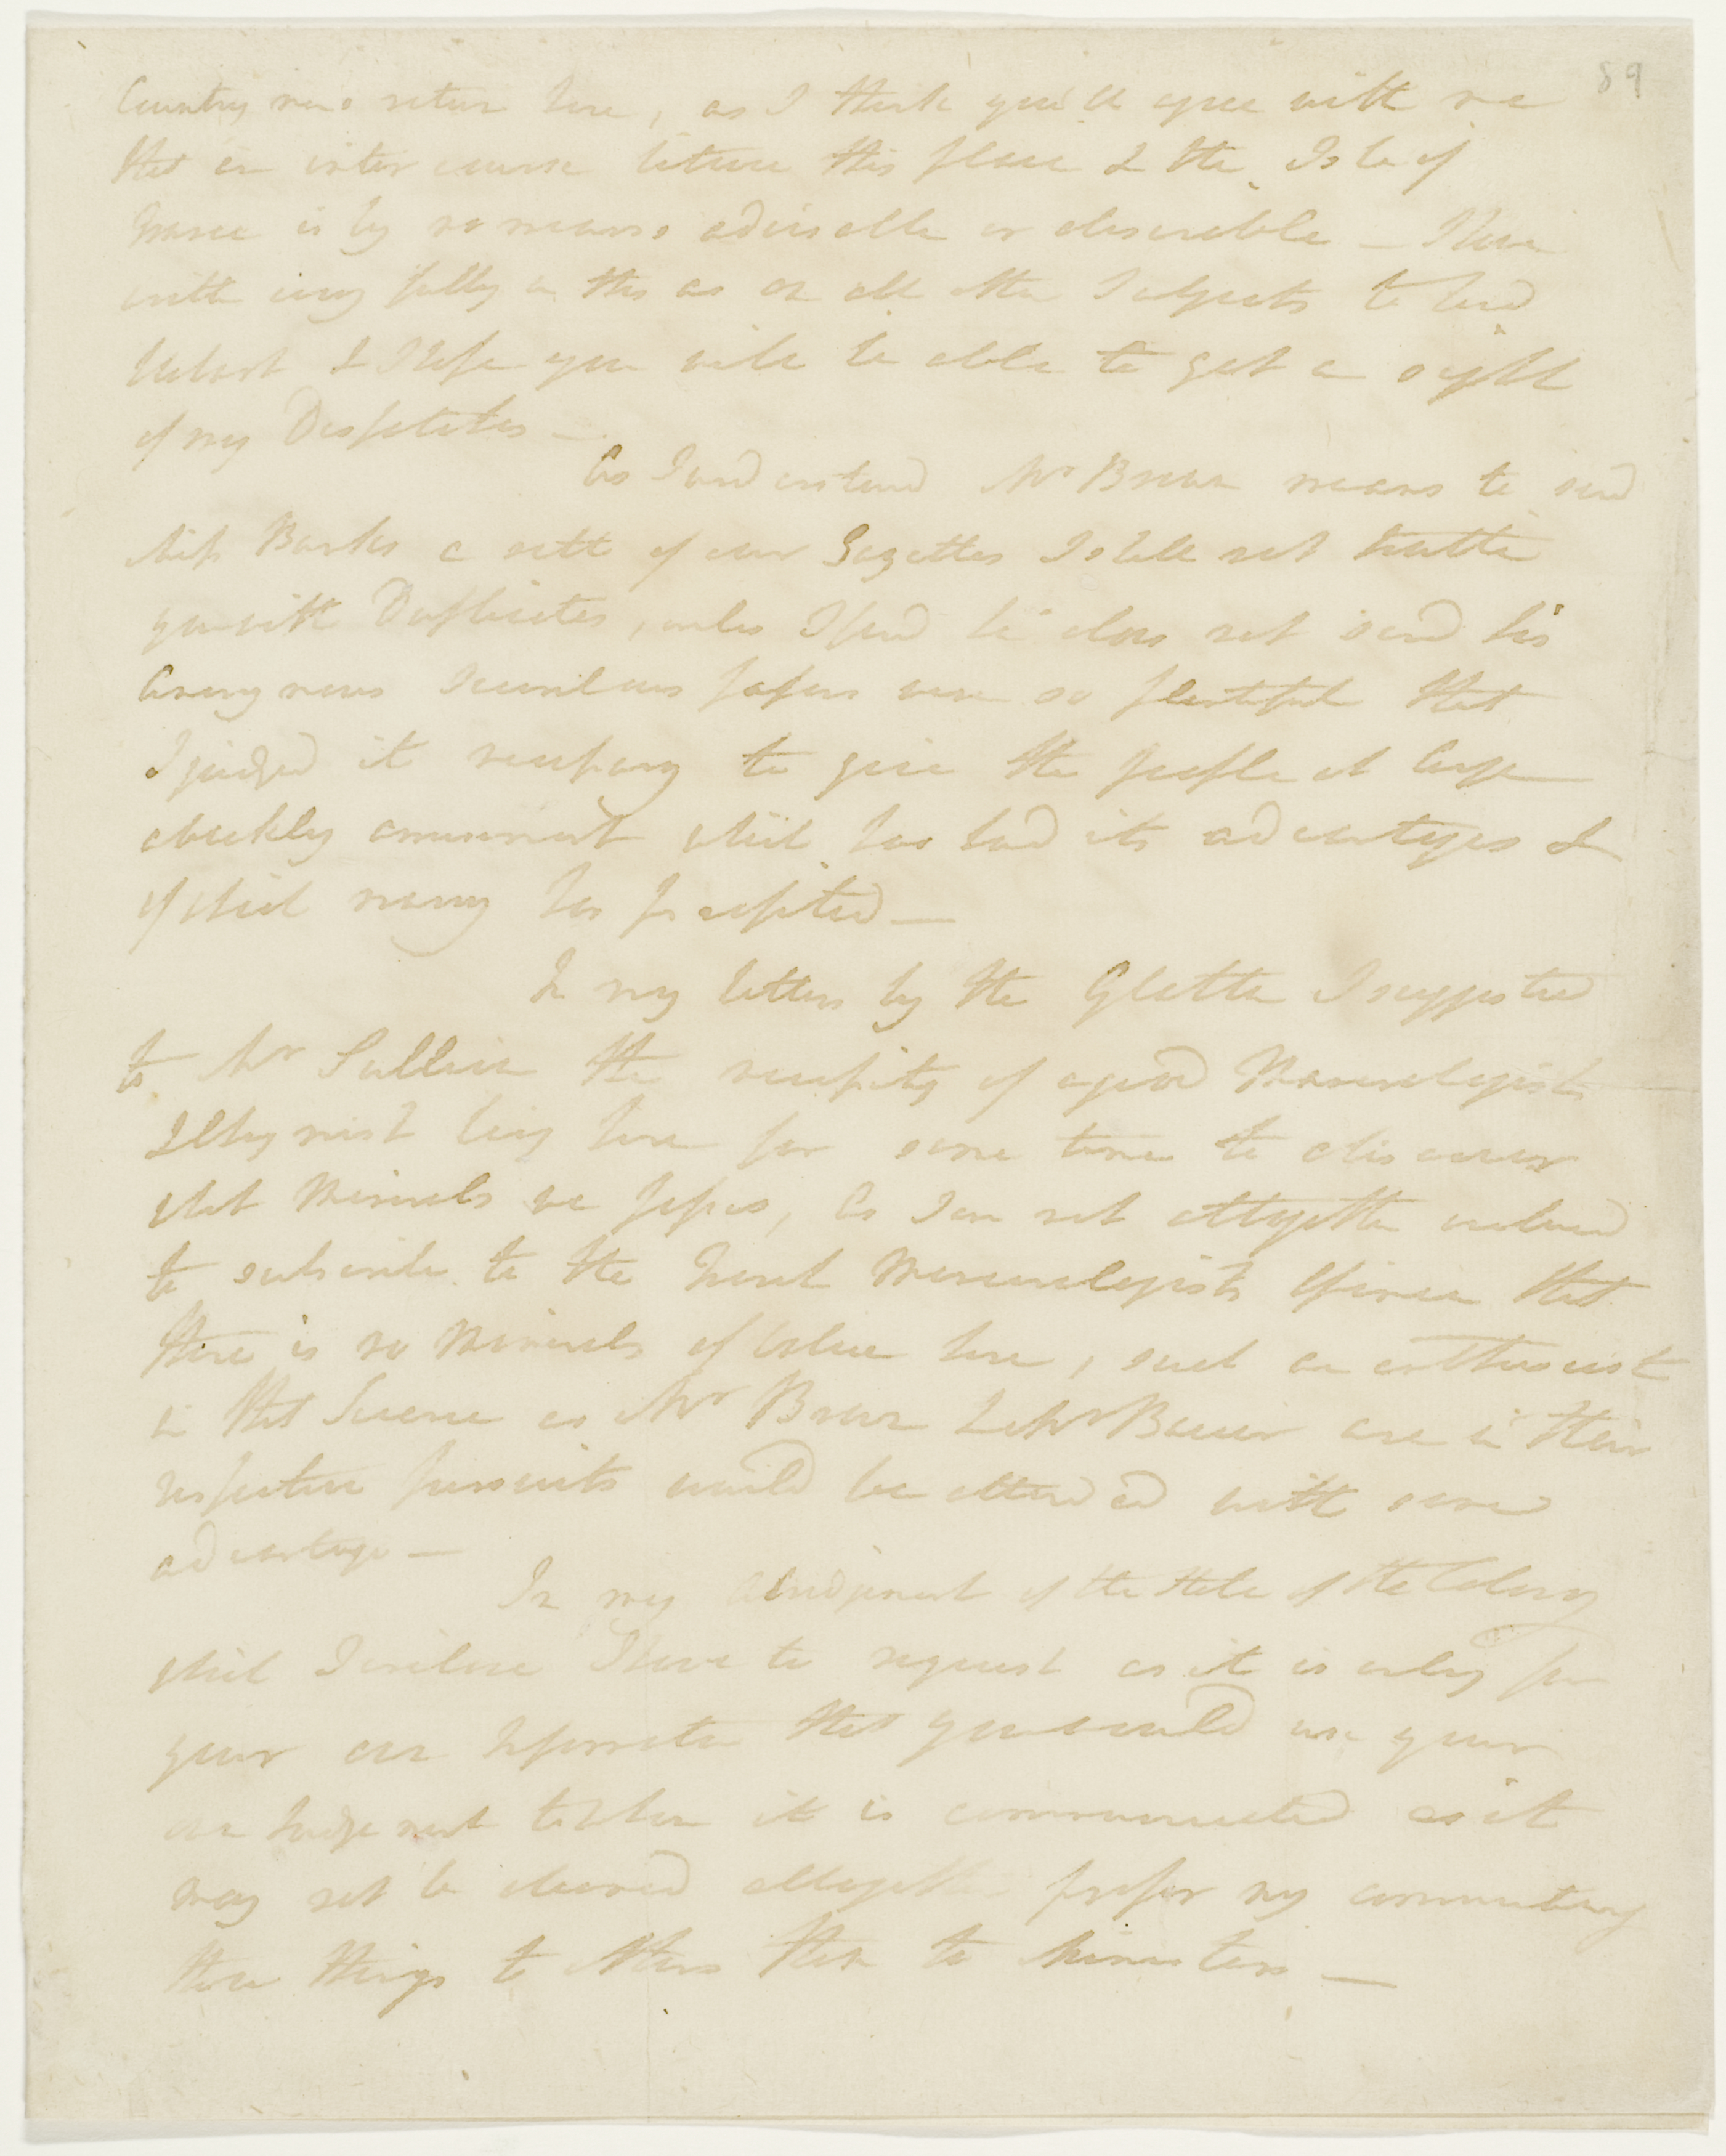 89
Country nor return here, as I think you'll agree with me
that an inter course between this place & the Isle of
France is by no means adviseable or desireable — I have
written very fully on this as on all other Subjects to Lord
Hobart & I hope you will be able to get a sight
of my Despatches —
As I understand Mr Brown means to send
Miss Banks a sett of our Gazettes I shall not trouble
you with Duplicates, unless I find he does not send his
Anonymous Scurrilous papers were so plentiful that
I judged it necessary to give the people at large
a weekly amusement which has had its advantages &
of which many has profited —
In my letters by the Glatton I suggested
to Mr Sullivan the necessity of a good Mineralogist
& Chymist being here for some time to discover
what Minerals we possess, As I am not altogether inclined
to subscribe to the French Mineralogists Opinion that
there is no Minerals of Value here, such an enthusiast
in that Science as Mr Brown & Mr Bauer are in their
respective pursuits would be attended with some
advantage —
In my abridgment of the State of the Colony
which I inclose I have to request as it is only for
your own Information that you would use your
own Judgement to whom it is communicated as it
may not be deemed altogether proper my communicating
these things to others than to Ministers —